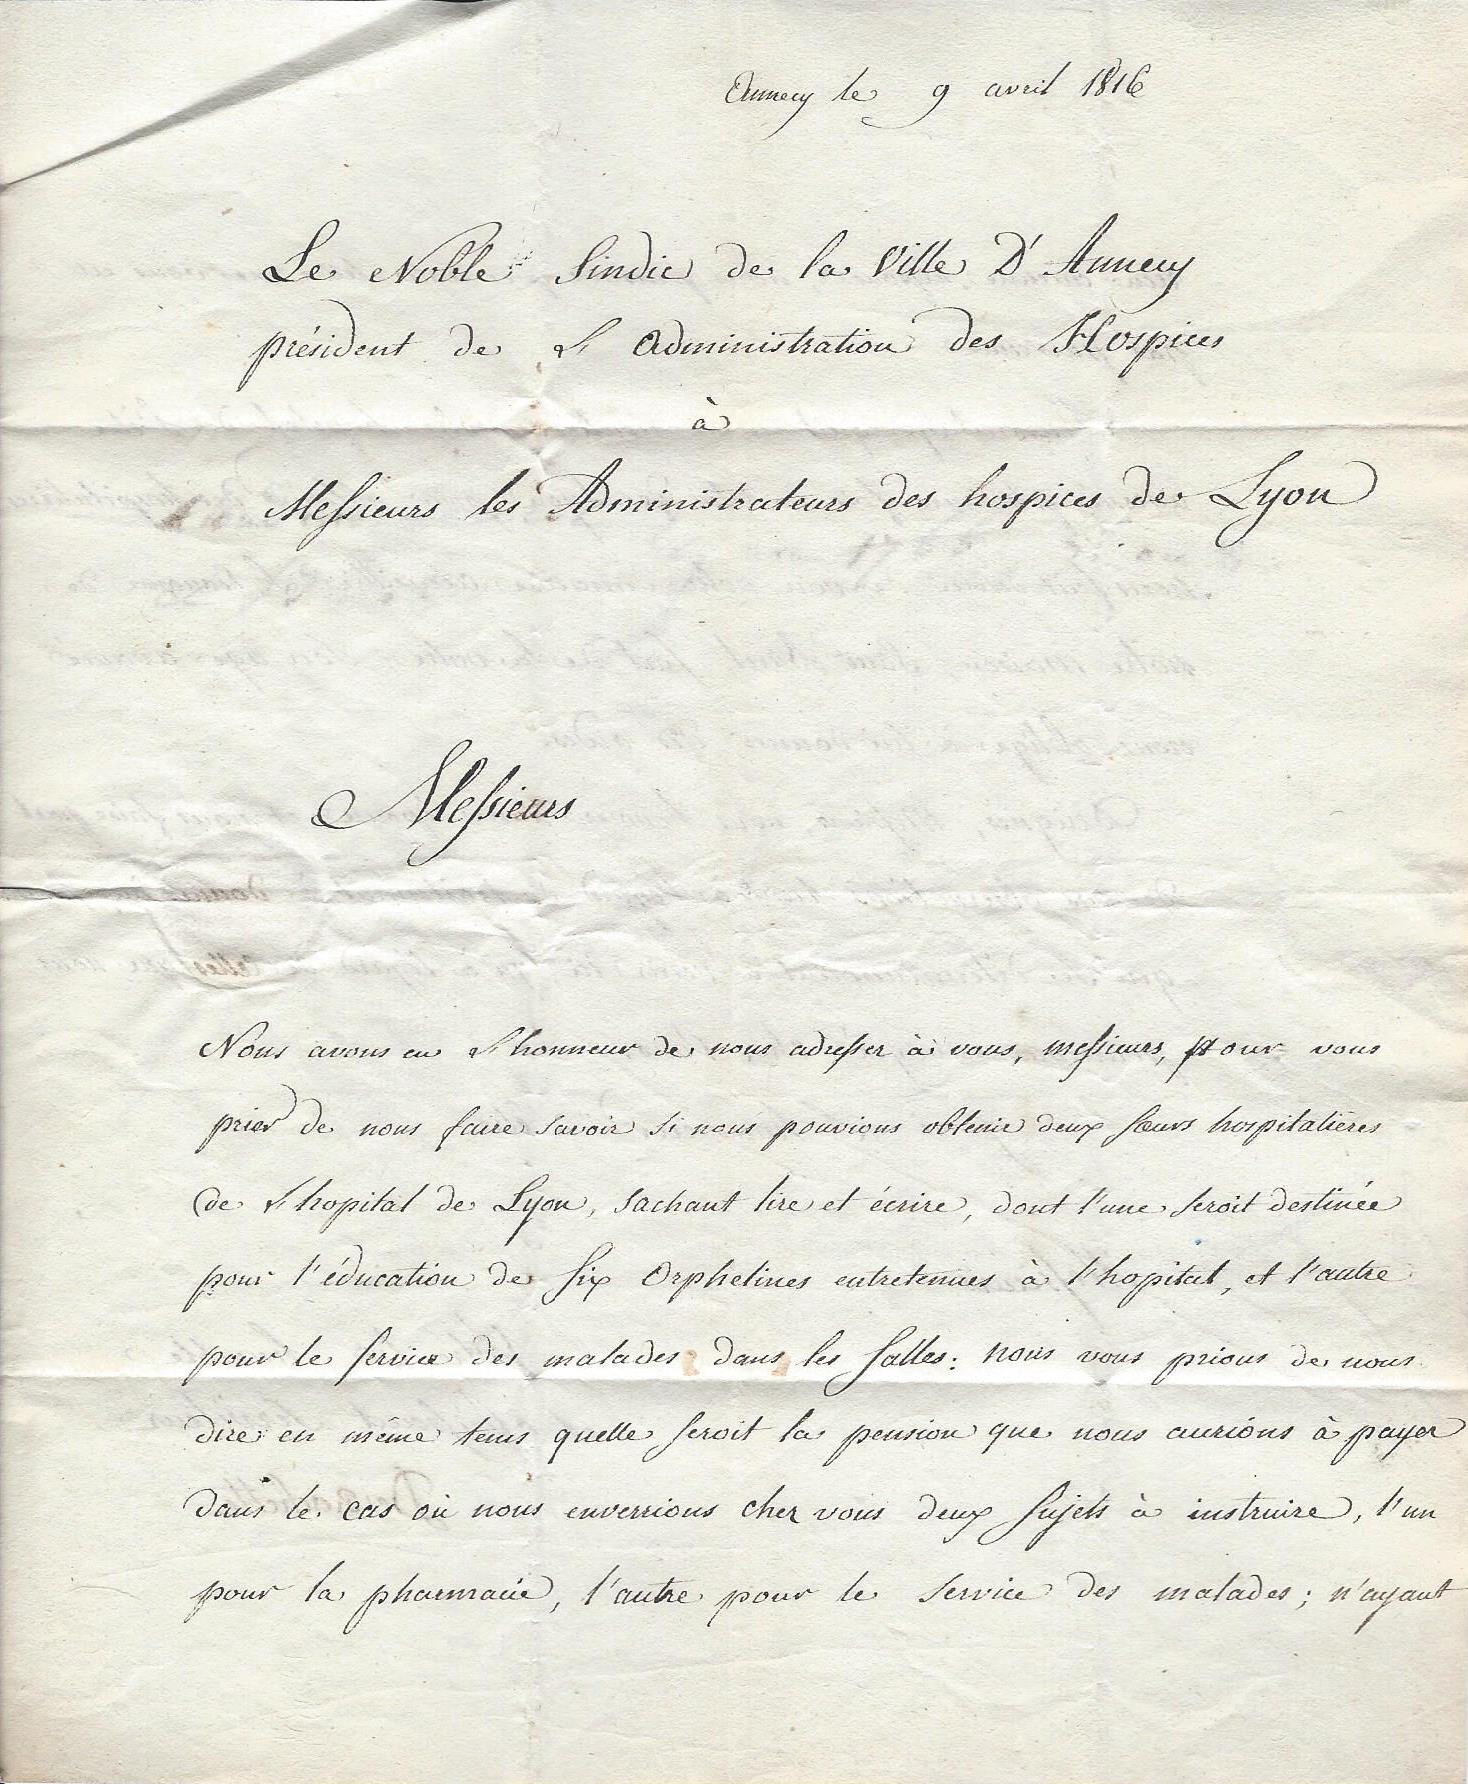 Annecy le 9 avril 1816
Le Noble Sindic de la Ville D'Annecy
président de L'administration des Hospices
à
Messieurs les Administrateurs des hospices de Lyon
Messieurs
Nous avons eu L'honneur de nous adresser à vous, messieurs, pour vous
prier de nous faire savoir si nous pouvions obtenir deux sœurs hospitalières
de L'hopital de Lyon, sachant lire et écrire, dont l'une seroit destinée
pour l'éducation de six Orphelines entretenues à l'hopital, et l'autre
pour le service des malades dans les salles: nous vous prions de nous
dire en même tems quelle seroit la pension que nous aurions à payer
dans le cas où nous enverrions chez vous deux sujets à instruire, l'un
pour la pharmacie, l'autre pour le service des malades; n'ayant